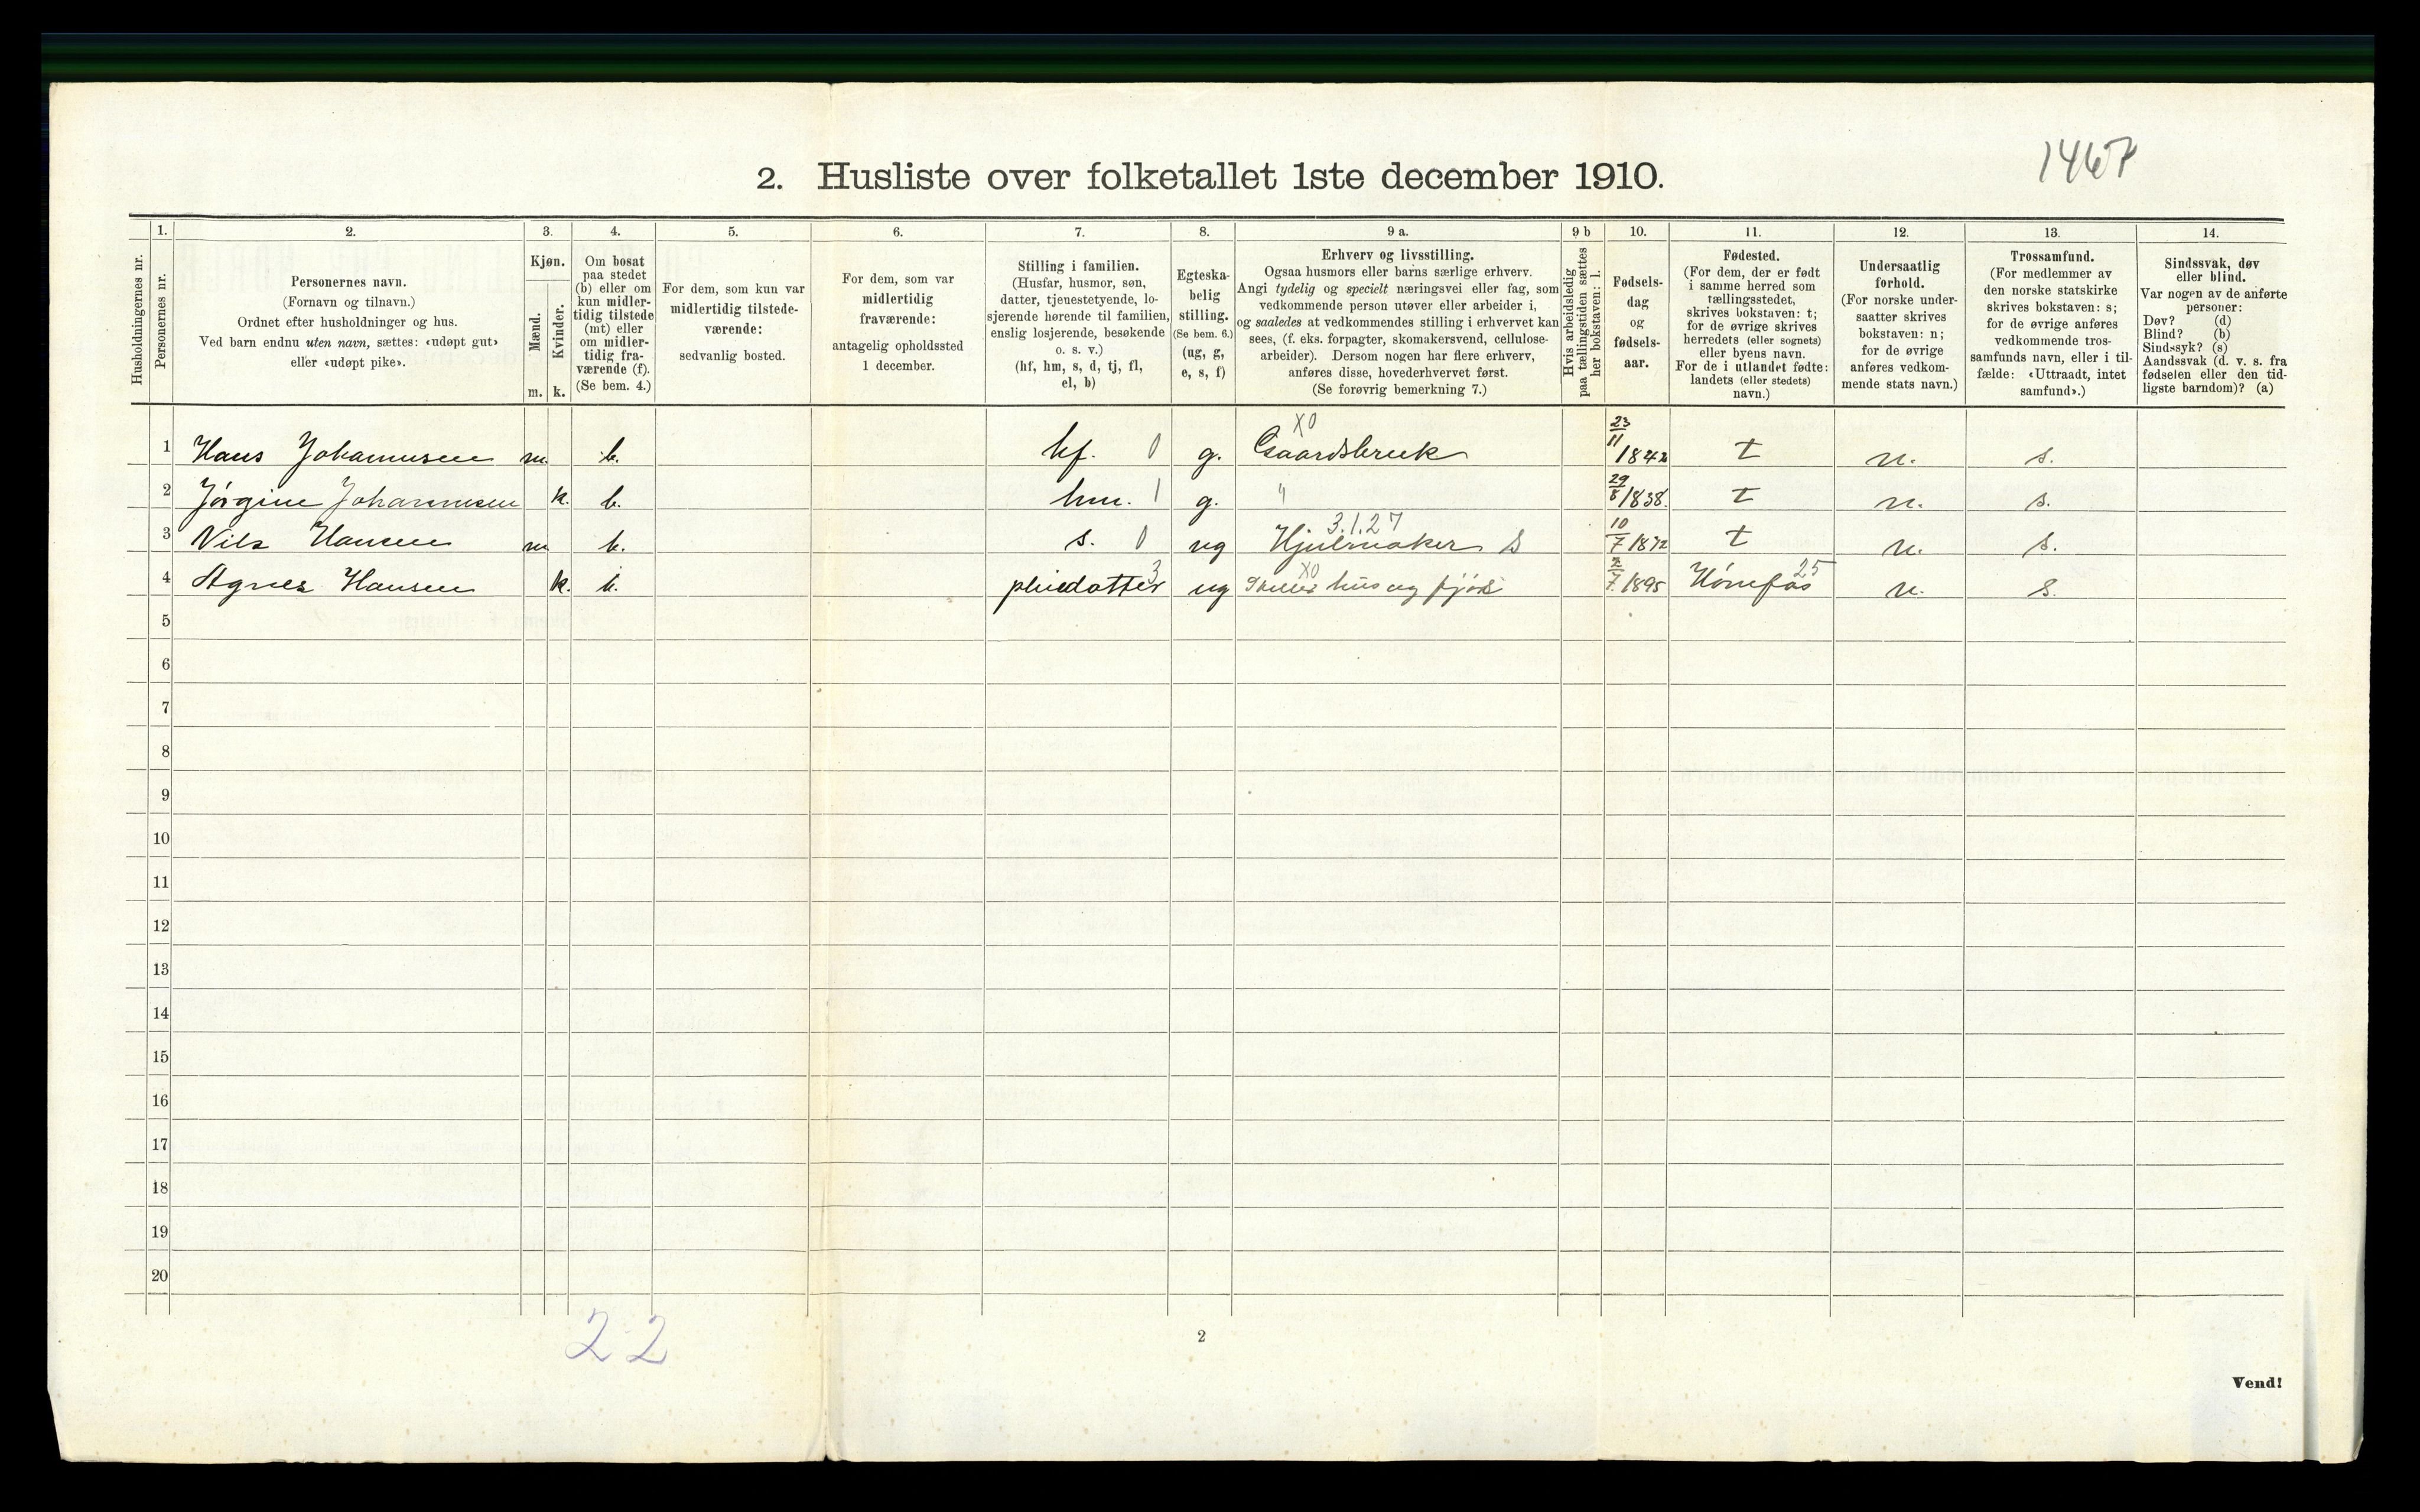 1467
2. Husliste over folketallet 1ste december 1910.
Husholdningernes nr.
1.
Personernes nr.
2.
Personernes navn.
(Fornavn og tilnavn.)
Ordnet efter husholdninger og hus.
Ved barn endnu uten navn, sættes: «udøpt gut»
eller «udøpt pike».
3.
Kjøn.
Mænd.
m.
Kvinder.
k.
4.
Om bosat
paa stedet
(b) eller om
kun midler-
tidig tilstede
(mt) eller
om midler-
tidig fra-
værende (f).
(Se bem. 4.)
5.
For dem, som kun var
midlertidig tilstede-
værende:
sedvanlig bosted.
6.
For dem, som var
midlertidig
fraværende:
antagelig opholdssted
1 december.
7.
Stilling i familien.
(Husfar, husmor, søn,
datter, tjenestetyende, lo-
sjerende hørende til familien,
enslig losjerende, besøkende
o. s. v.)
(hf, hm, s, d, tj, fl,
el, b)
8.
Egteska-
belig
stilling.
(Se bem. 6.)
(ug, g,
e, s, f)
9 a.
Erhverv og livsstilling.
Ogsaa husmors eller barns særlige erhverv.
Angi tydelig og specielt næringsvei eller fag, som
vedkommende person utøver eller arbeider i,
og saaledes at vedkommendes stilling i erhvervet kan
sees, (f. eks. forpagter, skomakersvend, cellulose-
arbeider). Dersom nogen har flere erhverv,
anføres disse, hovederhvervet først.
(Se forøvrig bemerkning 7.)
9 b
Hvis arbeidsledig
paa tællingstiden sættes
her bokstaven: l.
10.
Fødsels-
dag
og
fødsels-
aar.
11.
Fødested.
(For dem, der er født
i samme herred som
tællingsstedet,
skrives bokstaven: t;
for de øvrige skrives
herredets (eller sognets)
eller byens navn.
For de i utlandet fødte:
landets (eller stedets)
navn.)
12.
Undersaatlig
forhold.
(For norske under-
saatter skrives
bokstaven: n;
for de øvrige
anføres vedkom-
mende stats navn.)
13.
Trossamfund.
(For medlemmer av
den norske statskirke
skrives bokstaven: s;
for de øvrige anføres
vedkommende tros-
samfunds navn, eller i til-
fælde: «Uttraadt, intet
samfund».)
14.
Sindssvak, døv
eller blind.
Var nogen av de anførte
personer:
Døv? (d)
Blind? (b)
Sindssyk? (s)
Aandssvak (d. v. s. fra
fødselen eller den tid-
ligste barndom)? (a)
1 Hans Johannesen m. b. hf. 0 g. X0 Gaardsbruk 23/11 1842 t n. s.
2 Jörgine Johannesen k. b. hm. 1 g. " 29/8 1838. t n. s.
3 Nils Hansen m b. s. 0 ug 3.1.27 Hjulmaker S 10/7 1872 t n. s.
4 Agnes Hansen k. b. pleiedatter 3 ug X0 Steller hus og fjös 2/7 1895 Hönefos 25 n. s.
5
6
7
8
9
10
11
12
13
14
15
16
17
18
19
20
22
2
Vend!